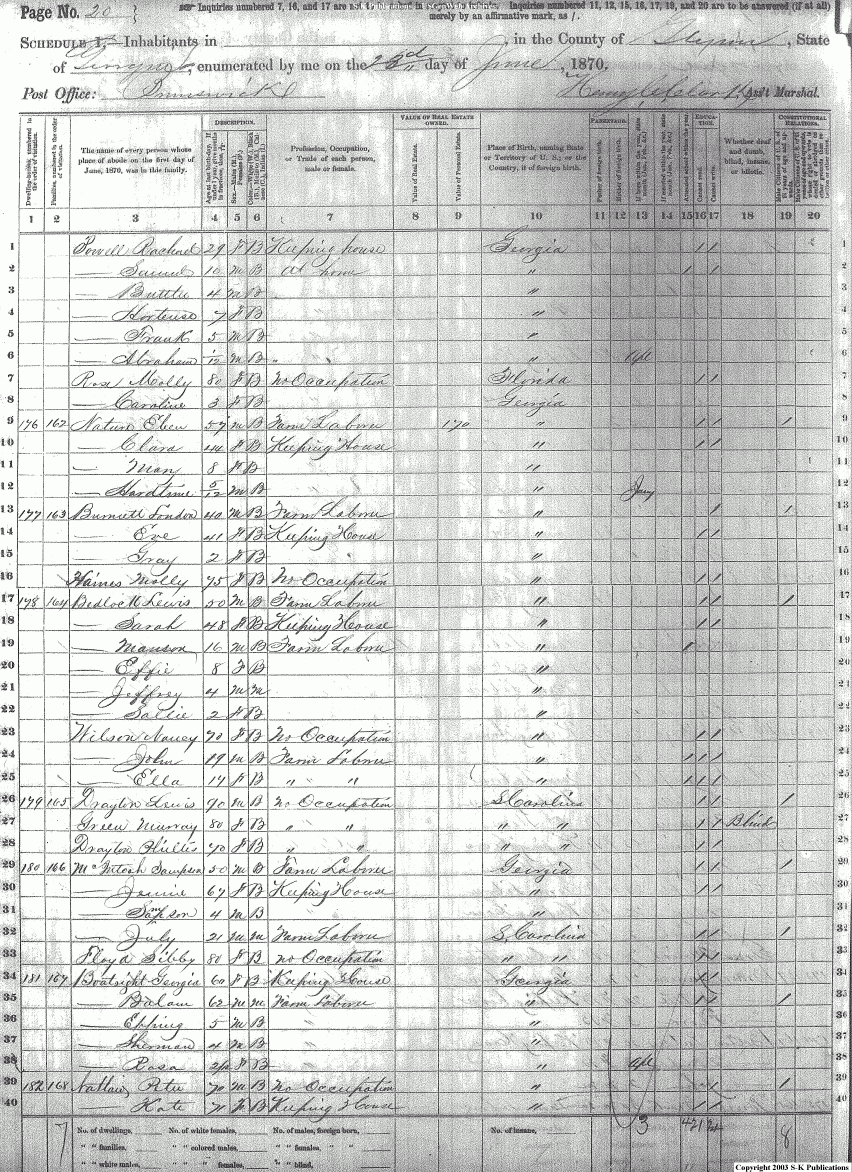 Page No. 20
Inquiries numbered 7, 16, and 17 are not to be asked in respect to infants. Inquiries numbered 11, 12, 15, 16, 17, 19, and 20 are to be answered (if at all) merely by an affirmative mark, as /.
SCHEDULE 1.—Inhabitants in , in the County of Glynn, State
of Georgia, enumerated by me on the 23rd day of June, 1870.
Post Office: Brunswick Ass't Marshal.
DESCRIPTION. VALUE OF REAL ESTATE OWNED. PARENTAGE. EDUCATION. CONSTITUTIONAL RELATIONS.
Dwelling-houses, numbered in the order of visitation. Families, numbered in the order of visitation. The name of every person whose place of abode on the first day of June, 1870, was in this family. Profession, Occupation, or Trade of each person, male or female. Value of Real Estate. Value of Personal Estate. Place of Birth, naming State or Territory of U. S.; or the Country, if of foreign birth. Father of foreign birth. Mother of foreign birth. Whether deaf and dumb, blind, insane, or idiotic.
1 2 3 4 5 6 7 8 9 10 11 12 13 14 15 16 17 18 19 20
1 Powell Rachael 29 F B Keeping house Georgia / / 1
2 — Samuel 10 M B At home " / / / 2
3 — 4 M B " 3
4 — Hortense 7 F B " 4
5 — Frank 5 M B " 5
6 — Abraham M B " Apl 6
7 Rose Molly 80 F B No Occupation Florida / / 7
8 — Caroline 3 F B Georgia 8
9 176 162 57 M B Farm Laborer 170 " / / / 9
10 — Clara 44 F B Keeping House " / / 10
11 — Mary 8 F B " 11
12 — Hardtime 5/12 M B " Jany 12
13 177 163 Burnett London 40 M B Farm Laborer " / / 13
14 — Eve 41 F B Keeping House " / / 14
15 — Gray 2 F B " 15
16 Haines Molly 75 F B No Occupation " / / 16
17 178 164 Bedlock Lewis 50 M B Farm Laborer " / / / 17
18 — Sarah 48 F B Keeping House " / / 18
19 — Manson 16 M B Farm Laborer " / 19
20 — Effie 8 F B " 20
21 — Jeffrey 4 M M " 21
22 — Sallie 2 F B " 22
23 Wilson Nancy 70 F B No Occupation " / / 23
24 — John 19 M B Farm Laborer " / / / 24
25 — Ella 17 F B " " " / / / 25
26 179 165 Drayton Lewis 90 M B No Occupation S Carolina / / / 26
27 Green Murray 80 F B " " " " / / Blind 27
28 Drayton 70 F B " " " " / / 28
29 180 166 McIntosh Sampson 50 M B Farm Laborer Georgia / / / 29
30 — Jennie 67 F B Keeping House " / / 30
31 — Sampson 4 M B " 31
32 — July 21 M M Farm Laborer S. Carolina / / / 32
33 Floyd Sibby 80 F B No Occupation " " / / 33
34 181 167 Boatright Georgia 60 F B Keeping House Georgia / / 34
35 — Balam 62 M M Farm Laborer " / / / 35
36 — Epping 5 M B " 36
37 — Sherman 4 M B " 37
38 — Rosa F B " Apl 38
39 182 168 70 M B No Occupation " / / / 39
40 — Kate 71 F B Keeping House " / / 40
7 No. of dwellings, No. of white females, No. of males, foreign born, No. of insane, 3 8
" " families. " " colored males, " " females,
" " white males, " " females, " " blind,
Copyright 2003 S-K Publications